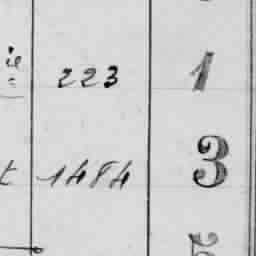 ie 223 1
t 1484 3
5